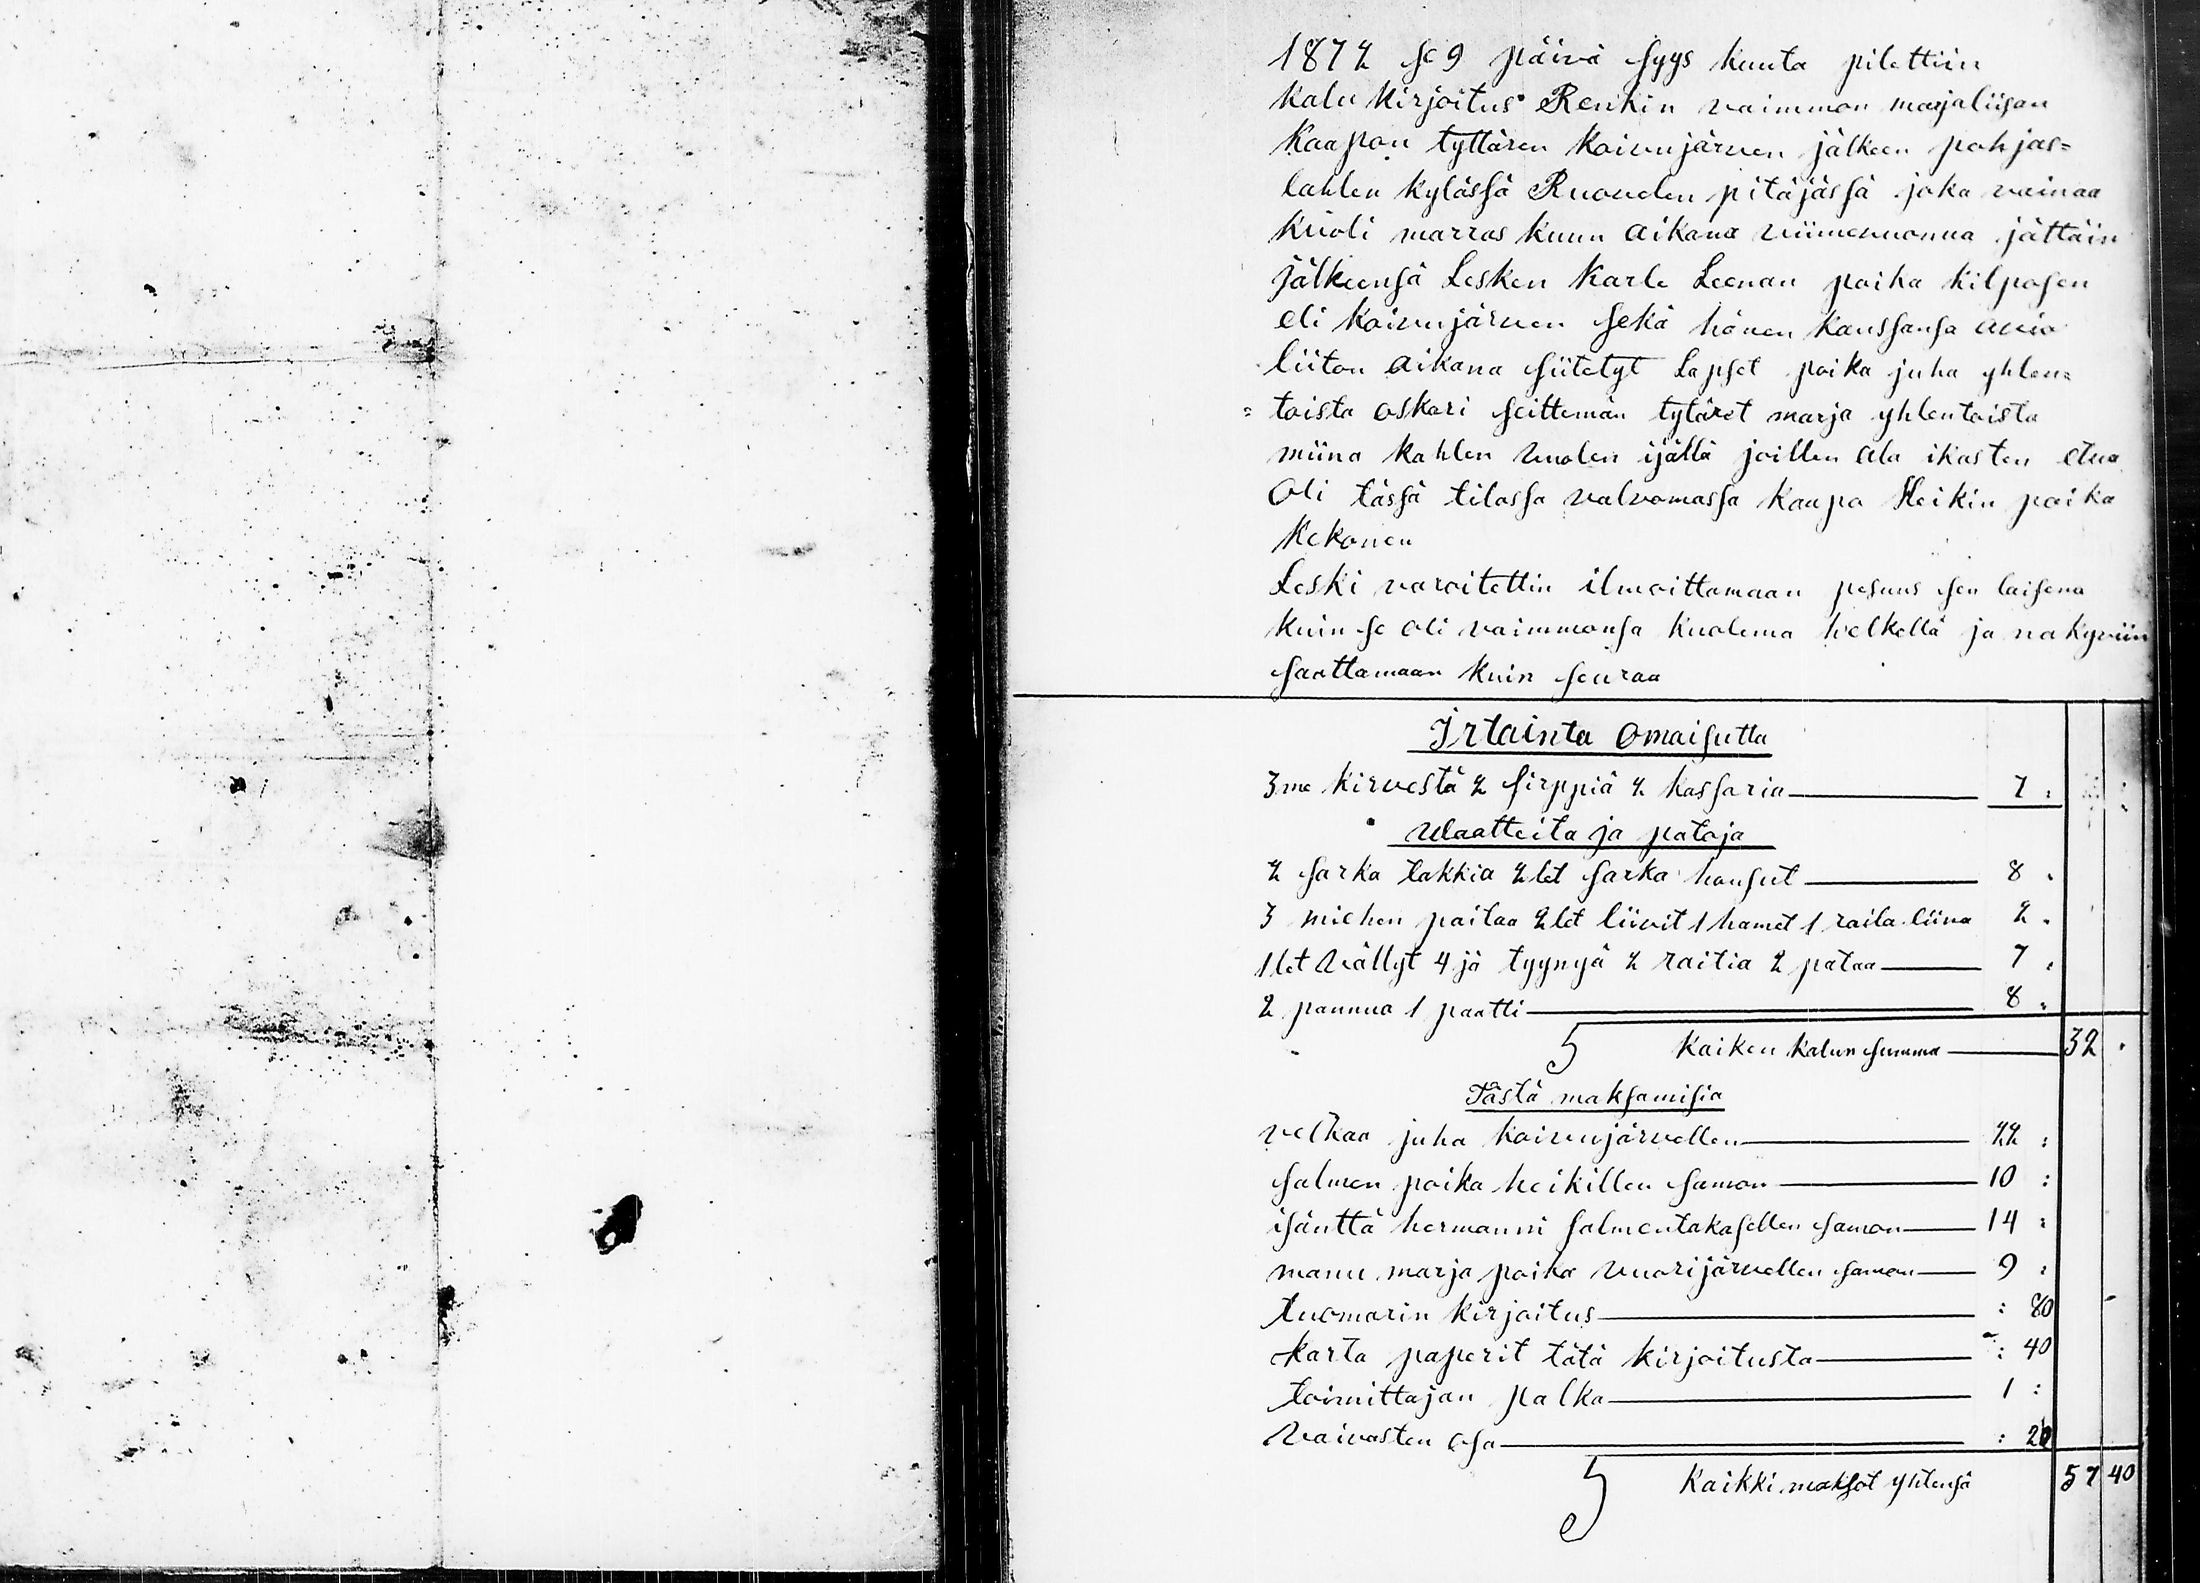 1872 se 9 päivä syys kuuta pilettiin
kalu kirjoitus Renkin vaimmon marjaliisan
Kaapon tyttären Koivujärven jälkeen pohjas=
lahlen kylässä Ruoveden pitäjässä joka vainaa
kuoli marras kuun aikana viimevuonna jättäin
jälkeensä Lesken Karle Leenan poika kilposen
eli Koivujärven sekä hänen kanssansa avio
liiton aikana siitetyt Lapset poika juha yhlen=
= toista oskari seittemän tytäret marja yhlentoista
miina kahlen vuolen ijällä joillen ala ikasten etua
Oli tässä tilassa valvomassa Kaupo Heikin poika
Kekonen
Leski varoitettin ilmoittamaan pesuns sen laisena
kuin se oli vaimmonsa kuolema helkellä ja nakyviin
saattamaan kuin seuraa
Irtainta Omaisutta
3me kirvestä 2 sirppiä 2 kassaria 7 :
Waatteita ja patoja
2 sarka takkia 2let sarka housut 8 .
3 miehen paitaa 2let liivit 1 hamet 1 raila liina 2 .
1let Vällyt 4jä tyynyä 2 raitia 2 pataa 7 .
2 pannua 1 paatti 8 .
S Kaiken kalun summa 32 .
Tästä maksamisia
velkaa juha koivujärvellen 22 :
salmen poika heikillen samon 10 :
isänttä hermanni salmentakasellen samon 14 :
manu marja poika vuorijärvellen samon 9 :
tuomarin kirjoitus : 80
karta paperit tätä kirjoitusta : 40
toimittajan palka 1 :
Vaivasten osa : 20
S Kaikki maksot yhtensä 57 40